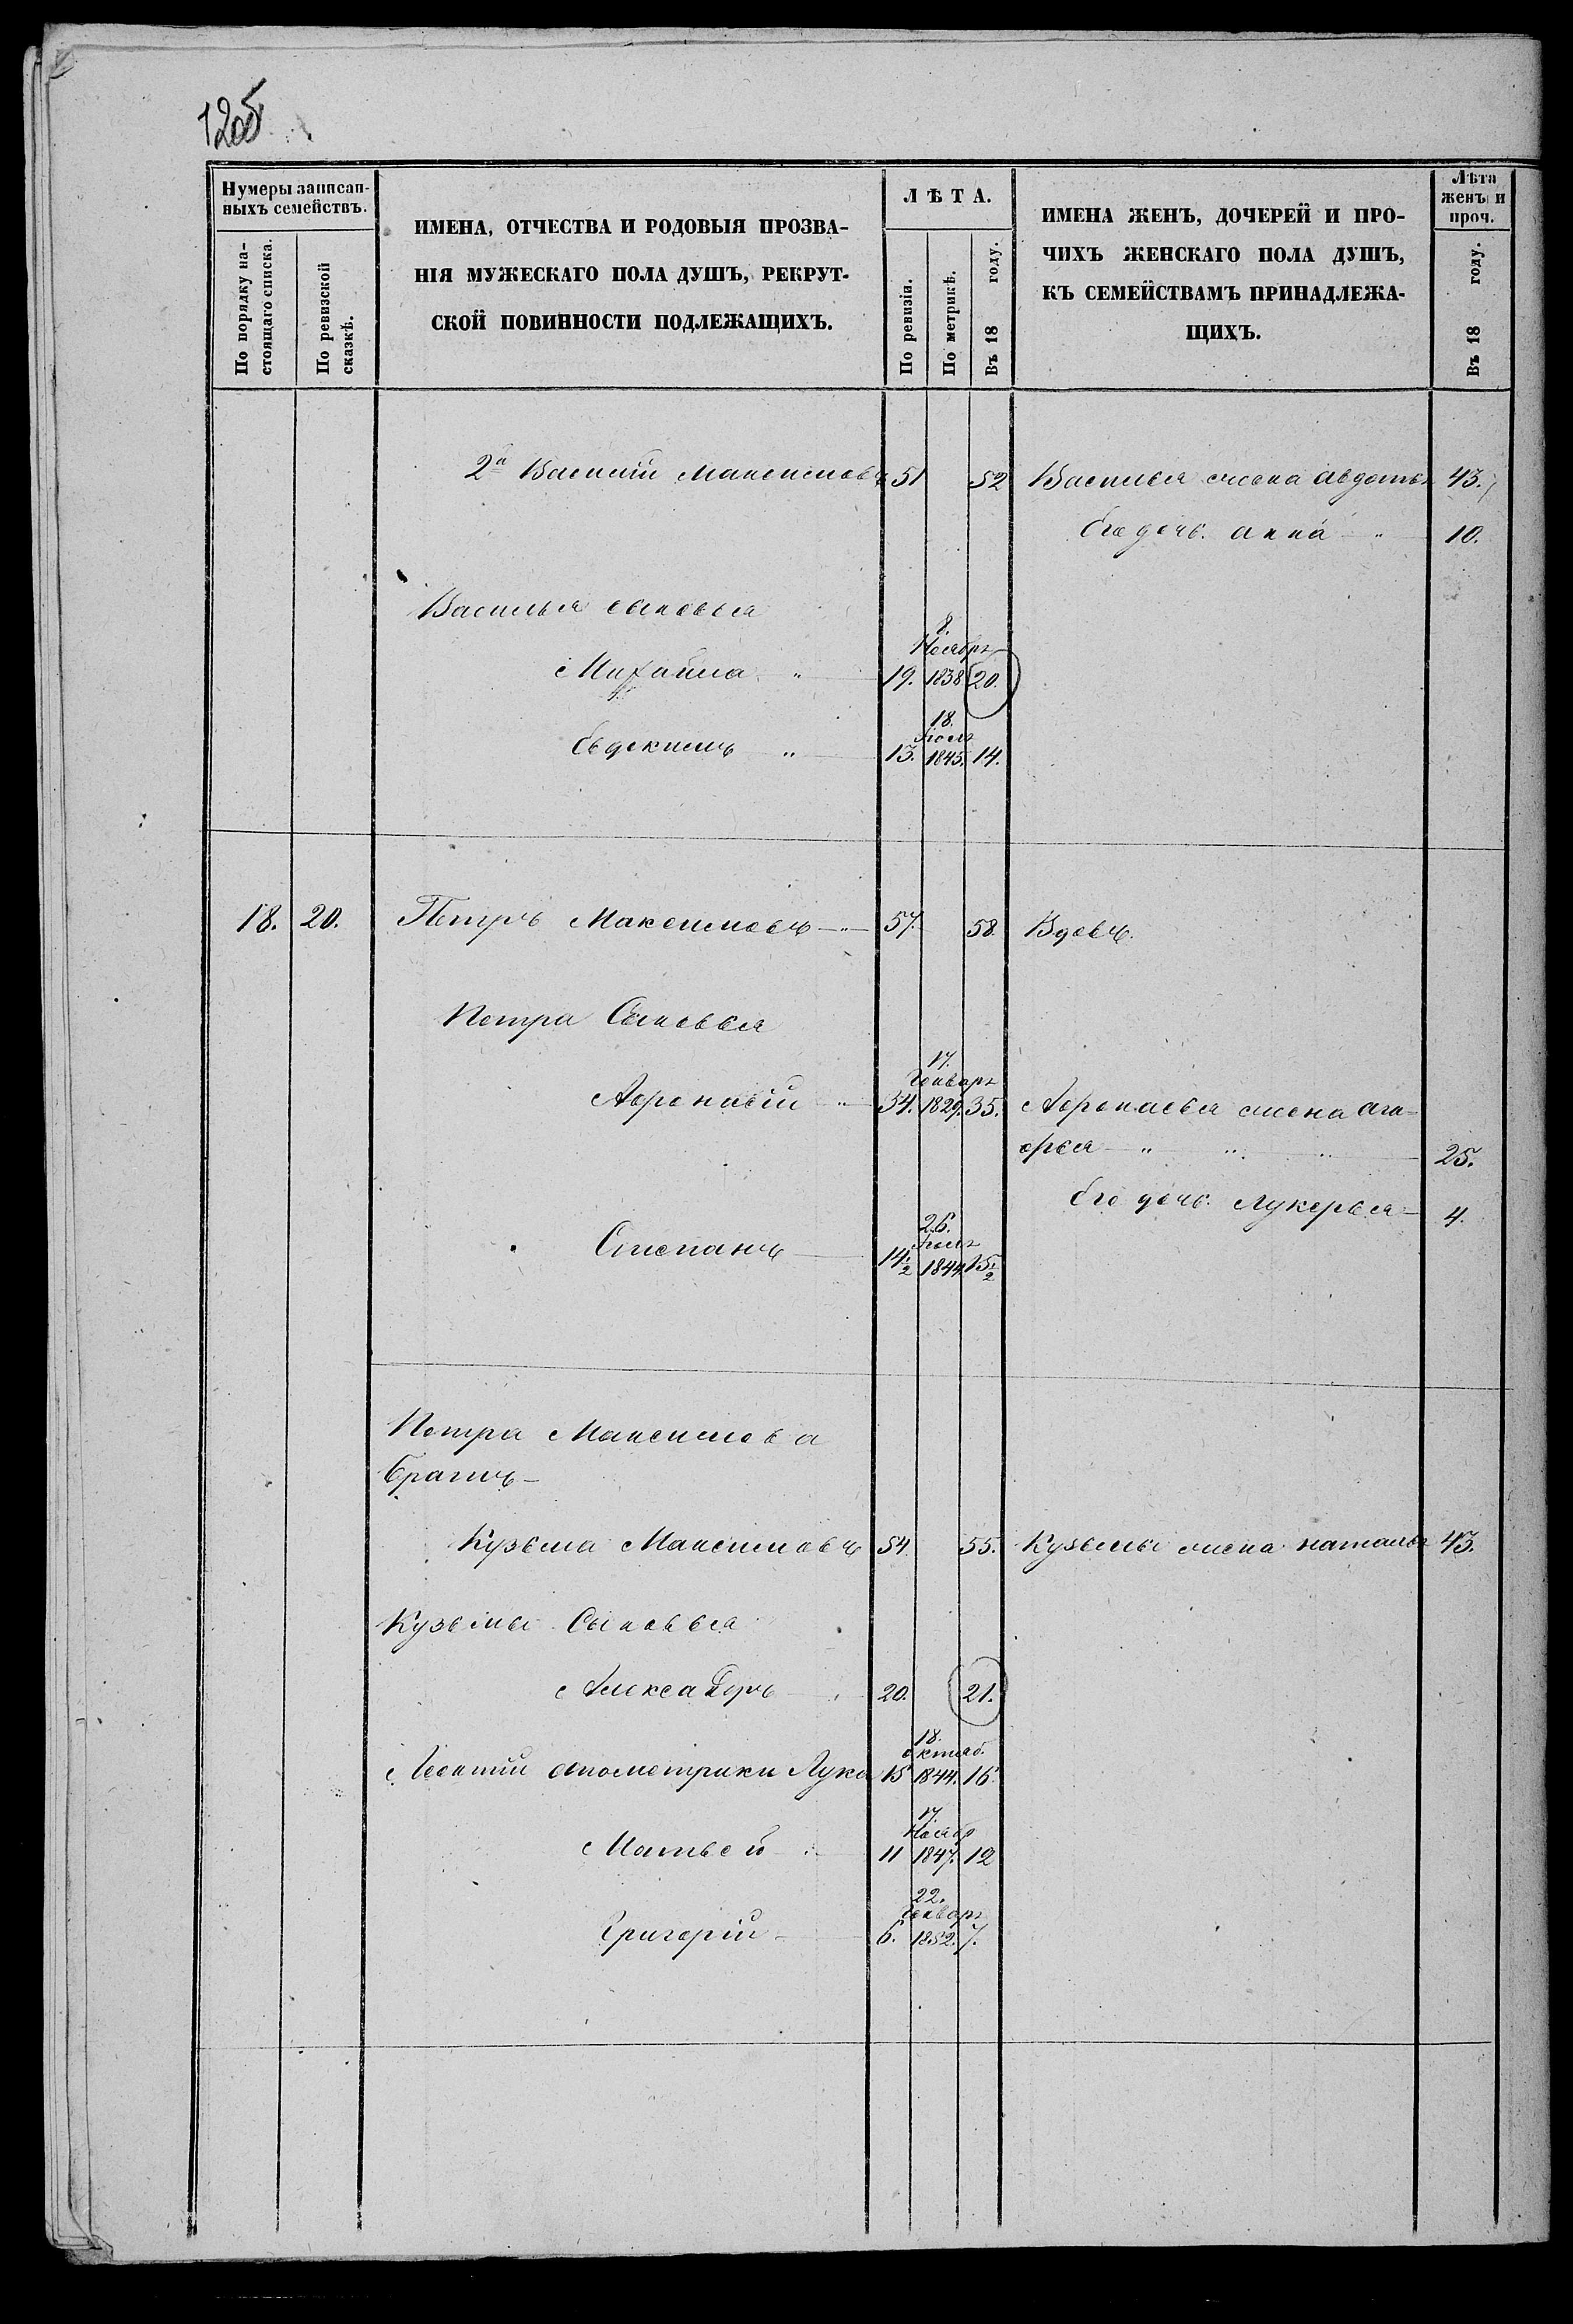 1205
Нумеры записан-
ныхъ семействъ.
По порядку на-
стоящаго списка.
По ревизской
сказкѣ.
ИМЕНА, ОТЧЕСТВА И РОДОВЫЯ ПРОЗВА-
НІЯ МУЖЕСКАГО ПОЛА ДУШЪ, РЕКРУТ-
СКОЙ ПОВИННОСТИ ПОДЛЕЖАЩИХЪ.
ЛѢТА.
По ревизіи.
По метрикѣ.
Въ 18 году.
ИМЕНА ЖЕНЪ, ДОЧЕРЕЙ И ПРО-
ЧИХЪ ЖЕНСКАГО ПОЛА ДУШЪ,
КЪ СЕМЕЙСТВАМЪ ПРИНАДЛЕЖА-
ЩИХЪ.
Лѣта
женъ и
проч.
Въ 18 году.
2й Василий Максимовъ 51 52 Василья жена Авдотья 43.
Его дочь Анна 10.
Василья сыновья
8.
Ноября
Михайла 19. 1838 20.
18.
Июля
Евдокимъ 13. 1845. 14.
18. 20. Петръ Максимовъ 57. 58. Вдовъ.
Петра Сыновья
17.
Генваря
Афонасій 34. 1829. 35. Афонасья жена Ага-
фья 25.
Его дочь Лукерья 4.
26.
Июля
Степанъ 14½ 1844 15½
Петра Максимова
братъ
Кузьма Максимовъ 54. 55. Кузьмы жена Наталья 43.
Кузьмы Сыновья
Алексадръ 20. 21.
18.
октяб.
Леонтий апометрики Лука 15 1844. 16.
17.
Ноябр
Матвей 11 1847. 12
22.
Генваря
Григорій 6. 1852. 7.